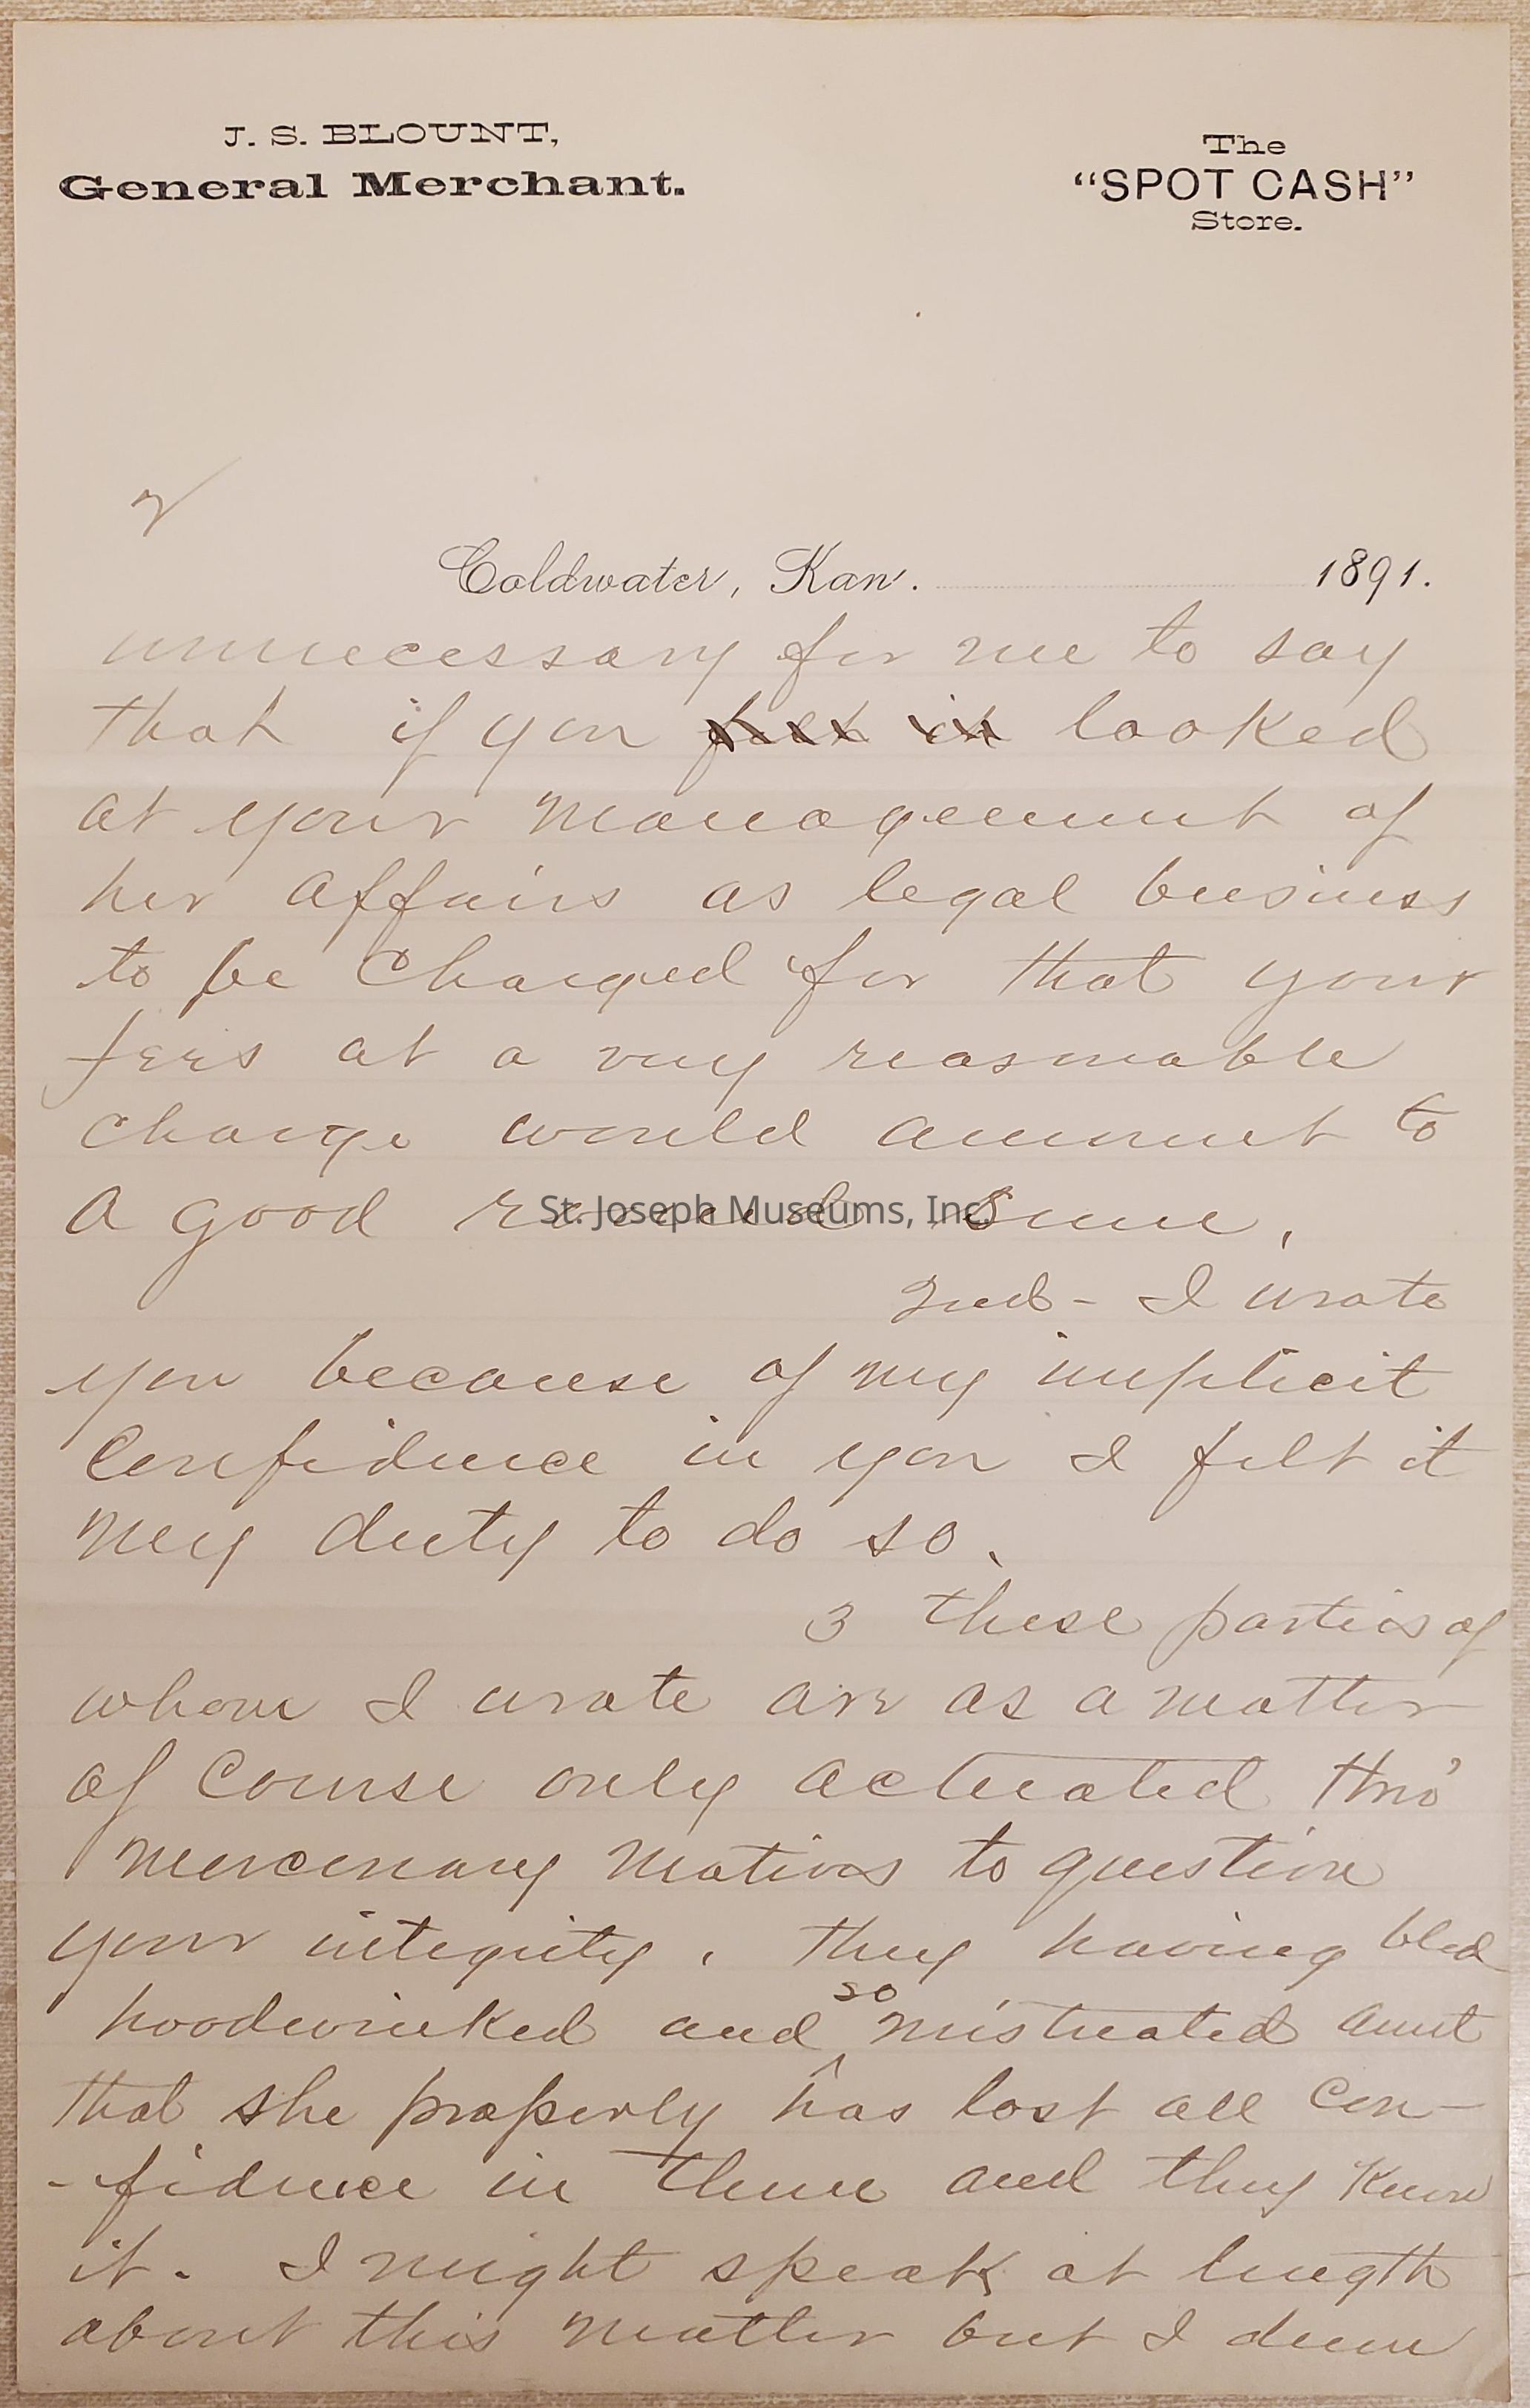 J. S. BLOUNT,
General Merchant.
The
"SPOT CASH"
Store.
2
Coldwater, Kan. 1891.
unnecessary for me to say
that if you felt it looked
at your management of
her affairs as legal business
to be Charged for that your
fees at a very reasonable
charge would amount to
a good round Sum,
St. Joseph Museums, Inc.
2nd - I wrote
you because of my implicit
Confidence in you I felt it
my duty to do so.
3 these parties of
whom I wrote are as a matter
of Course only actuated thro'
mercenary motives to question
your integrity. they having bled
hoodwinked and so mistreated aunt
that she properly has lost all con-
-fidence in them and they Know
it. I might speak at length
about this matter but I deem